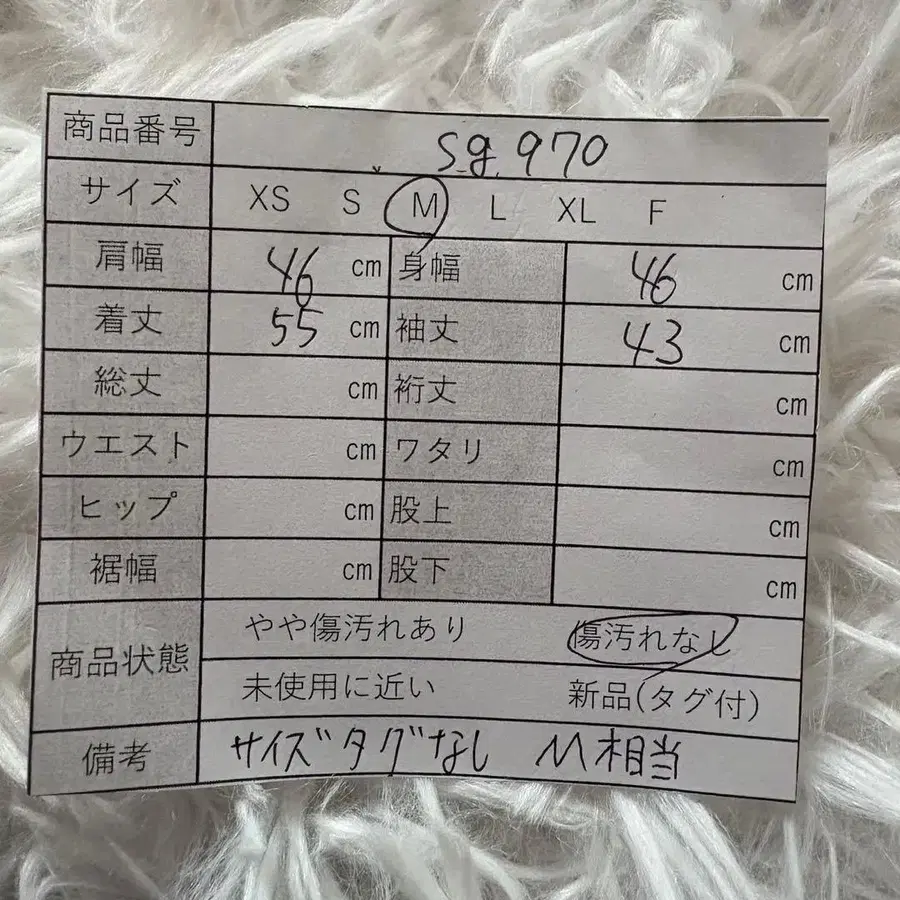 商品番号 sg 970
サイズ XS S M L XL F
肩幅 46 cm 身幅 46 cm
着丈 55 cm 袖丈 43 cm
総丈 cm 裄丈 cm
ウエスト cm ワタリ cm
ヒップ cm 股上 cm
裾幅 cm 股下 cm
商品状態 やや傷汚れあり 傷汚れなし
未使用に近い 新品(タグ付)
備考 サイズタグなし M相当